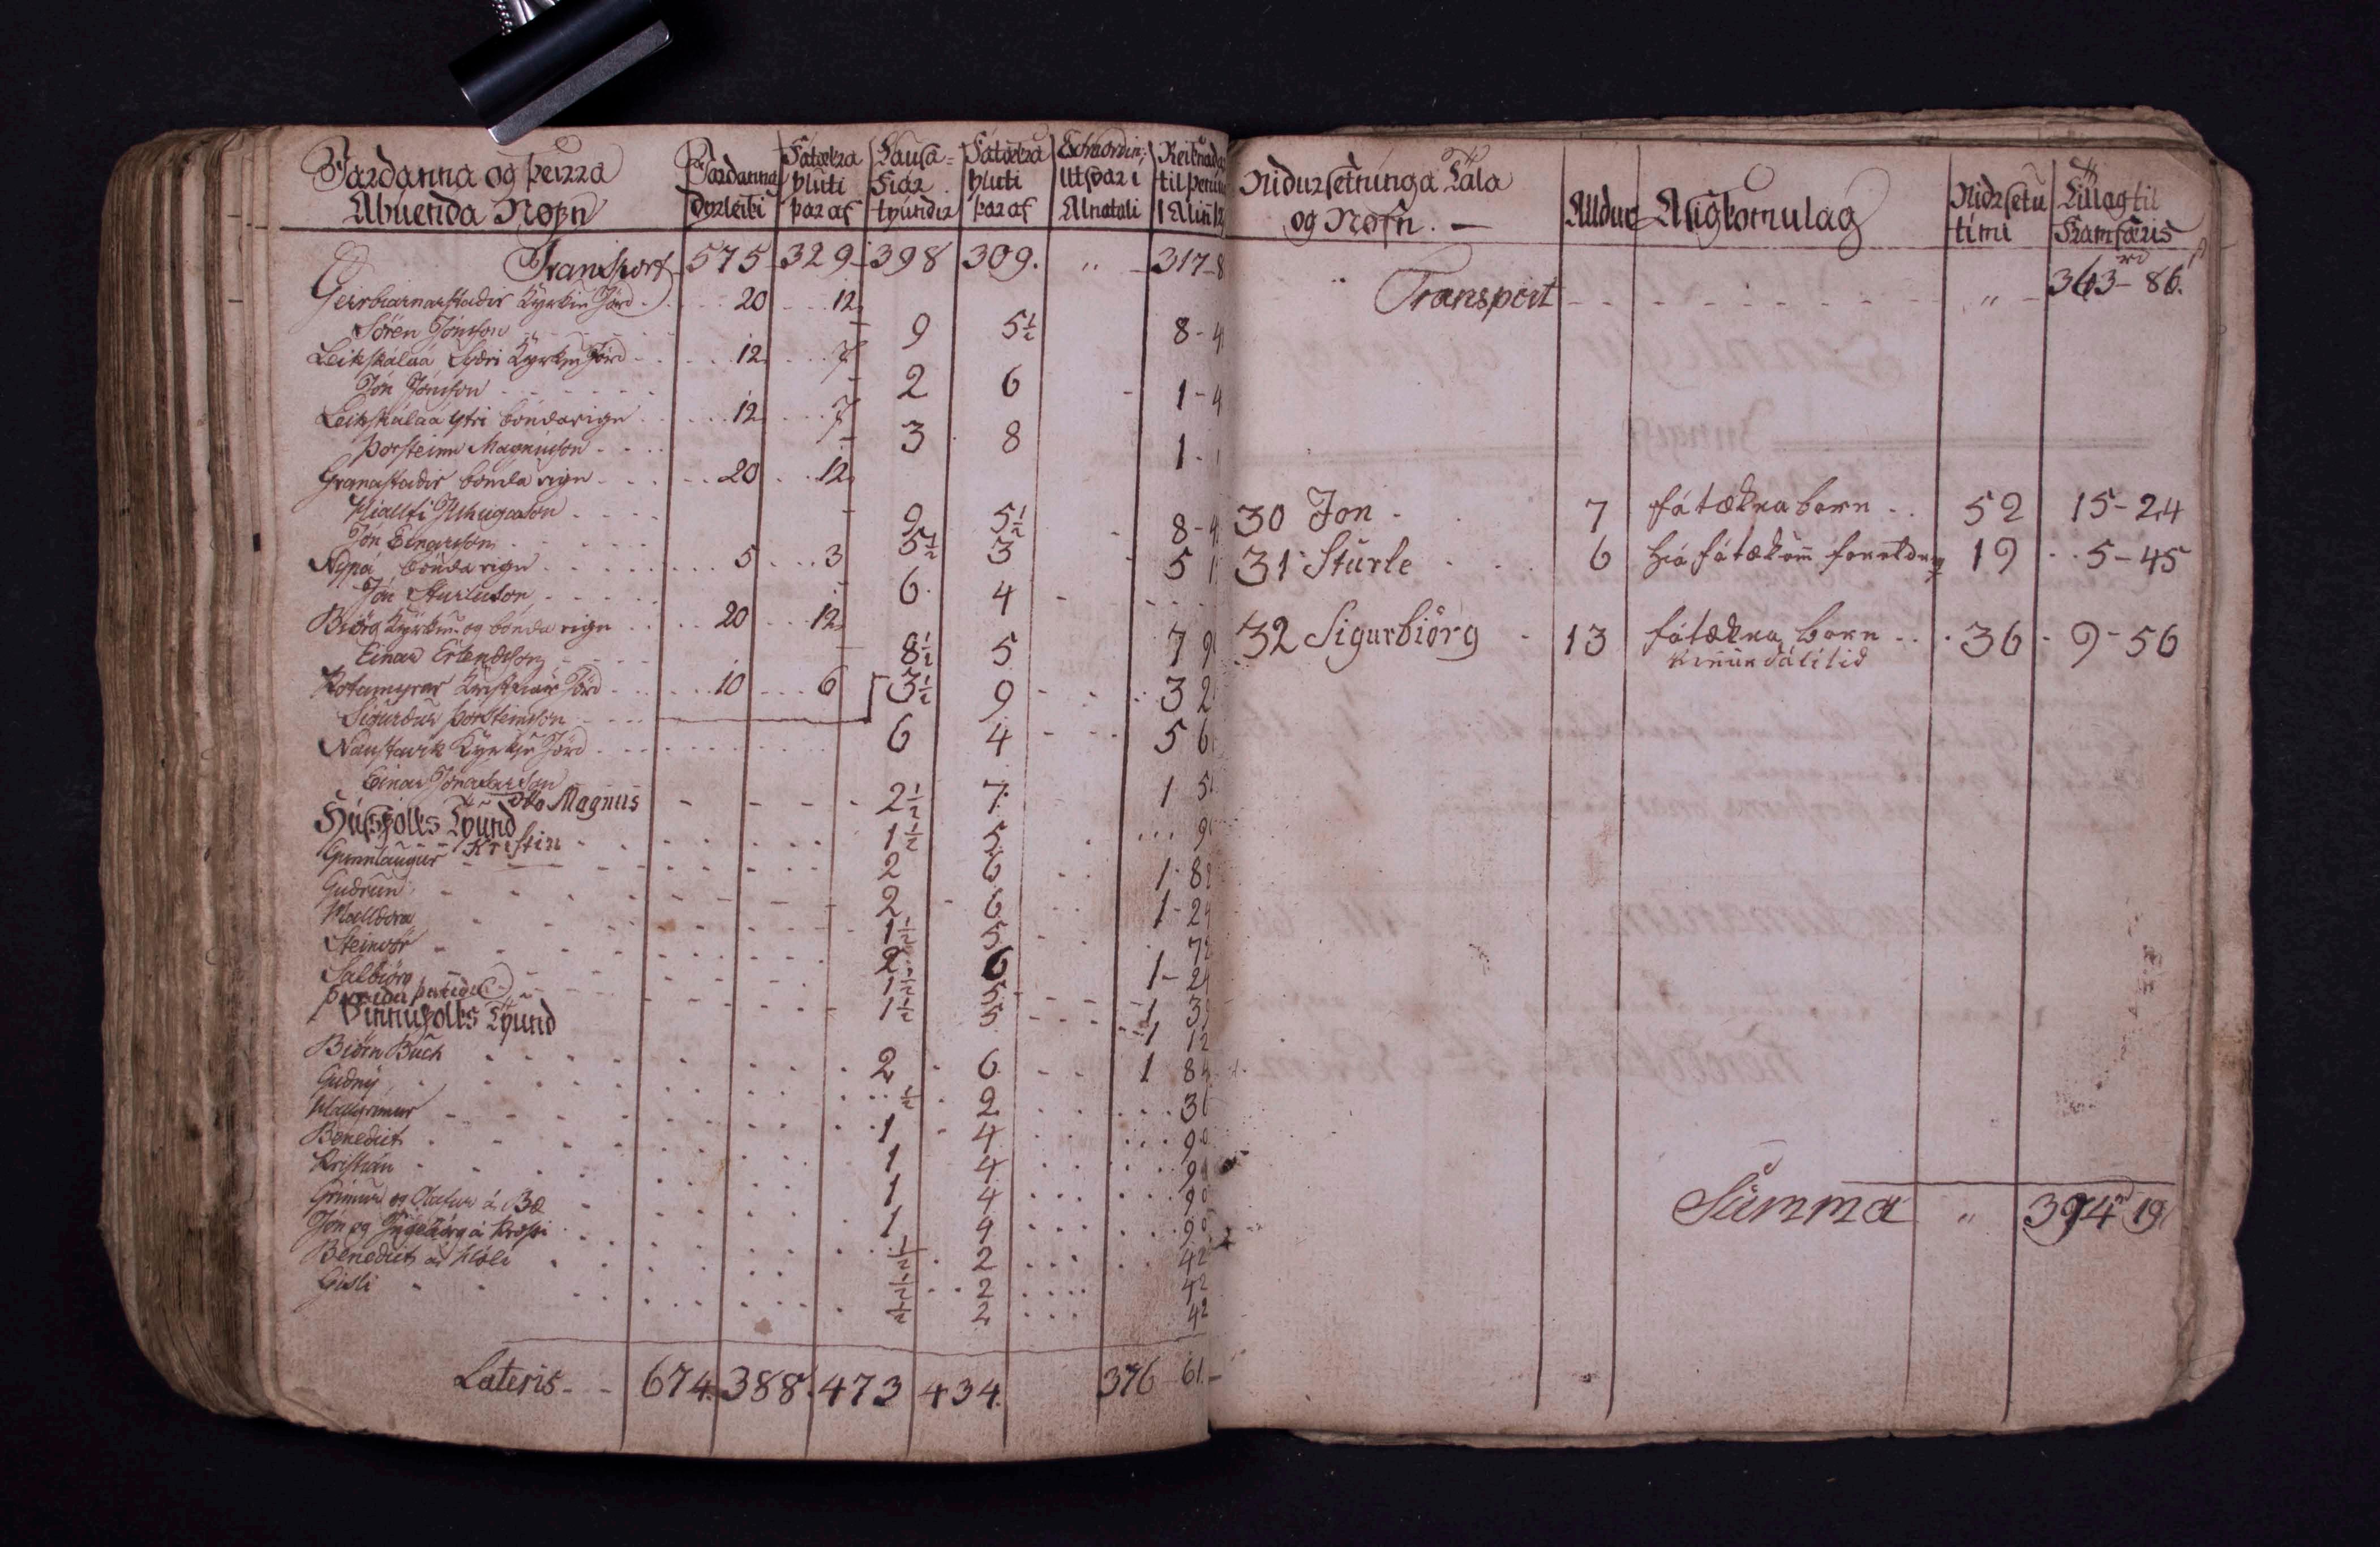 Jardanna og þeirra
Abuenda Nofn
Jardanna
dyrleiki
Fatækra
hluti
þar af
Lausa=
Fiár
tyundir
Fatækra
hluti
þar af
Extraordin:
Utsvar i
Alnatali
Reiknad
til penin
1 Alin
Transport 575 329 398 309. „ 317-8
Geirbiarnarstadir Kyrkiu Jörd 20 12
Sören Jónsson 9 5½ 8-4
Leikskálaá Sydri Kyrkiu Jörd 12 7
Jón Jónsson 2 6 1-4
Leikskálaá Ytri bóndaeign 12 7
Þorsteinn Magnússon 3 8 1-
Granastadir bonda eign 20 12
Hiallti Illhugason 9 5½ 8-4
Jón Einarsson 5½ 3 5
Nýpá bónda eign 5 3
Jón Sturluson 6 4
Biörg Kyrkiu- og bónda eign 20 12
Einar Erlendsson 8½ 5 7 9
Rotamyrar Kristfiár Jörd 10 6 3½ 9 3 2
Sigurdur Þorsteinsson
Naustavik Kyrkiu Jörd 6 4 5 6
Einar Jónatansson
Otto Magnus 2½ 7 1 5
Húsfólks Tyund
Kristin 1½ 5 9
Gunnlaugur 2 6 1-8
Gudrun 2 6 1-24
Halldóra 1½ 5 72
Steinvör 2 6 1-24
Salbiörg 1½ 5 1 3
Þuridur 1½ 5 1 12
Vinnufolks Tyund
Biörn Buch 2 6 1 84
Gudný ½ 2 36
Hallgrimur 1 4 90
Benedict 1 4 9
Kristián 1 4 90
Grimur og Olafur á Bæ 1 4 90
Jón og Ingebiörg á Krossi ½ 2 42
Benedict á Hóli ½ 2 42
Gisli ½ 2 42
Lateris 674. 388. 473 434. 376 61.
Nidursetninga Tala
og Nofn.
Alldur
Asigkomulag
Nidrsetu
timi
Tillag til
Framfæris
rd
Transport „ 363-86.
30 Jon 7 fátækra barn 52 15-24
31 Sturle 6 hiá fátækum foreldrum 19 5-45
32 Sigurbiörg 13 fátækra barn 36 9-56
vinnandi lítid
Summa „ 394 19